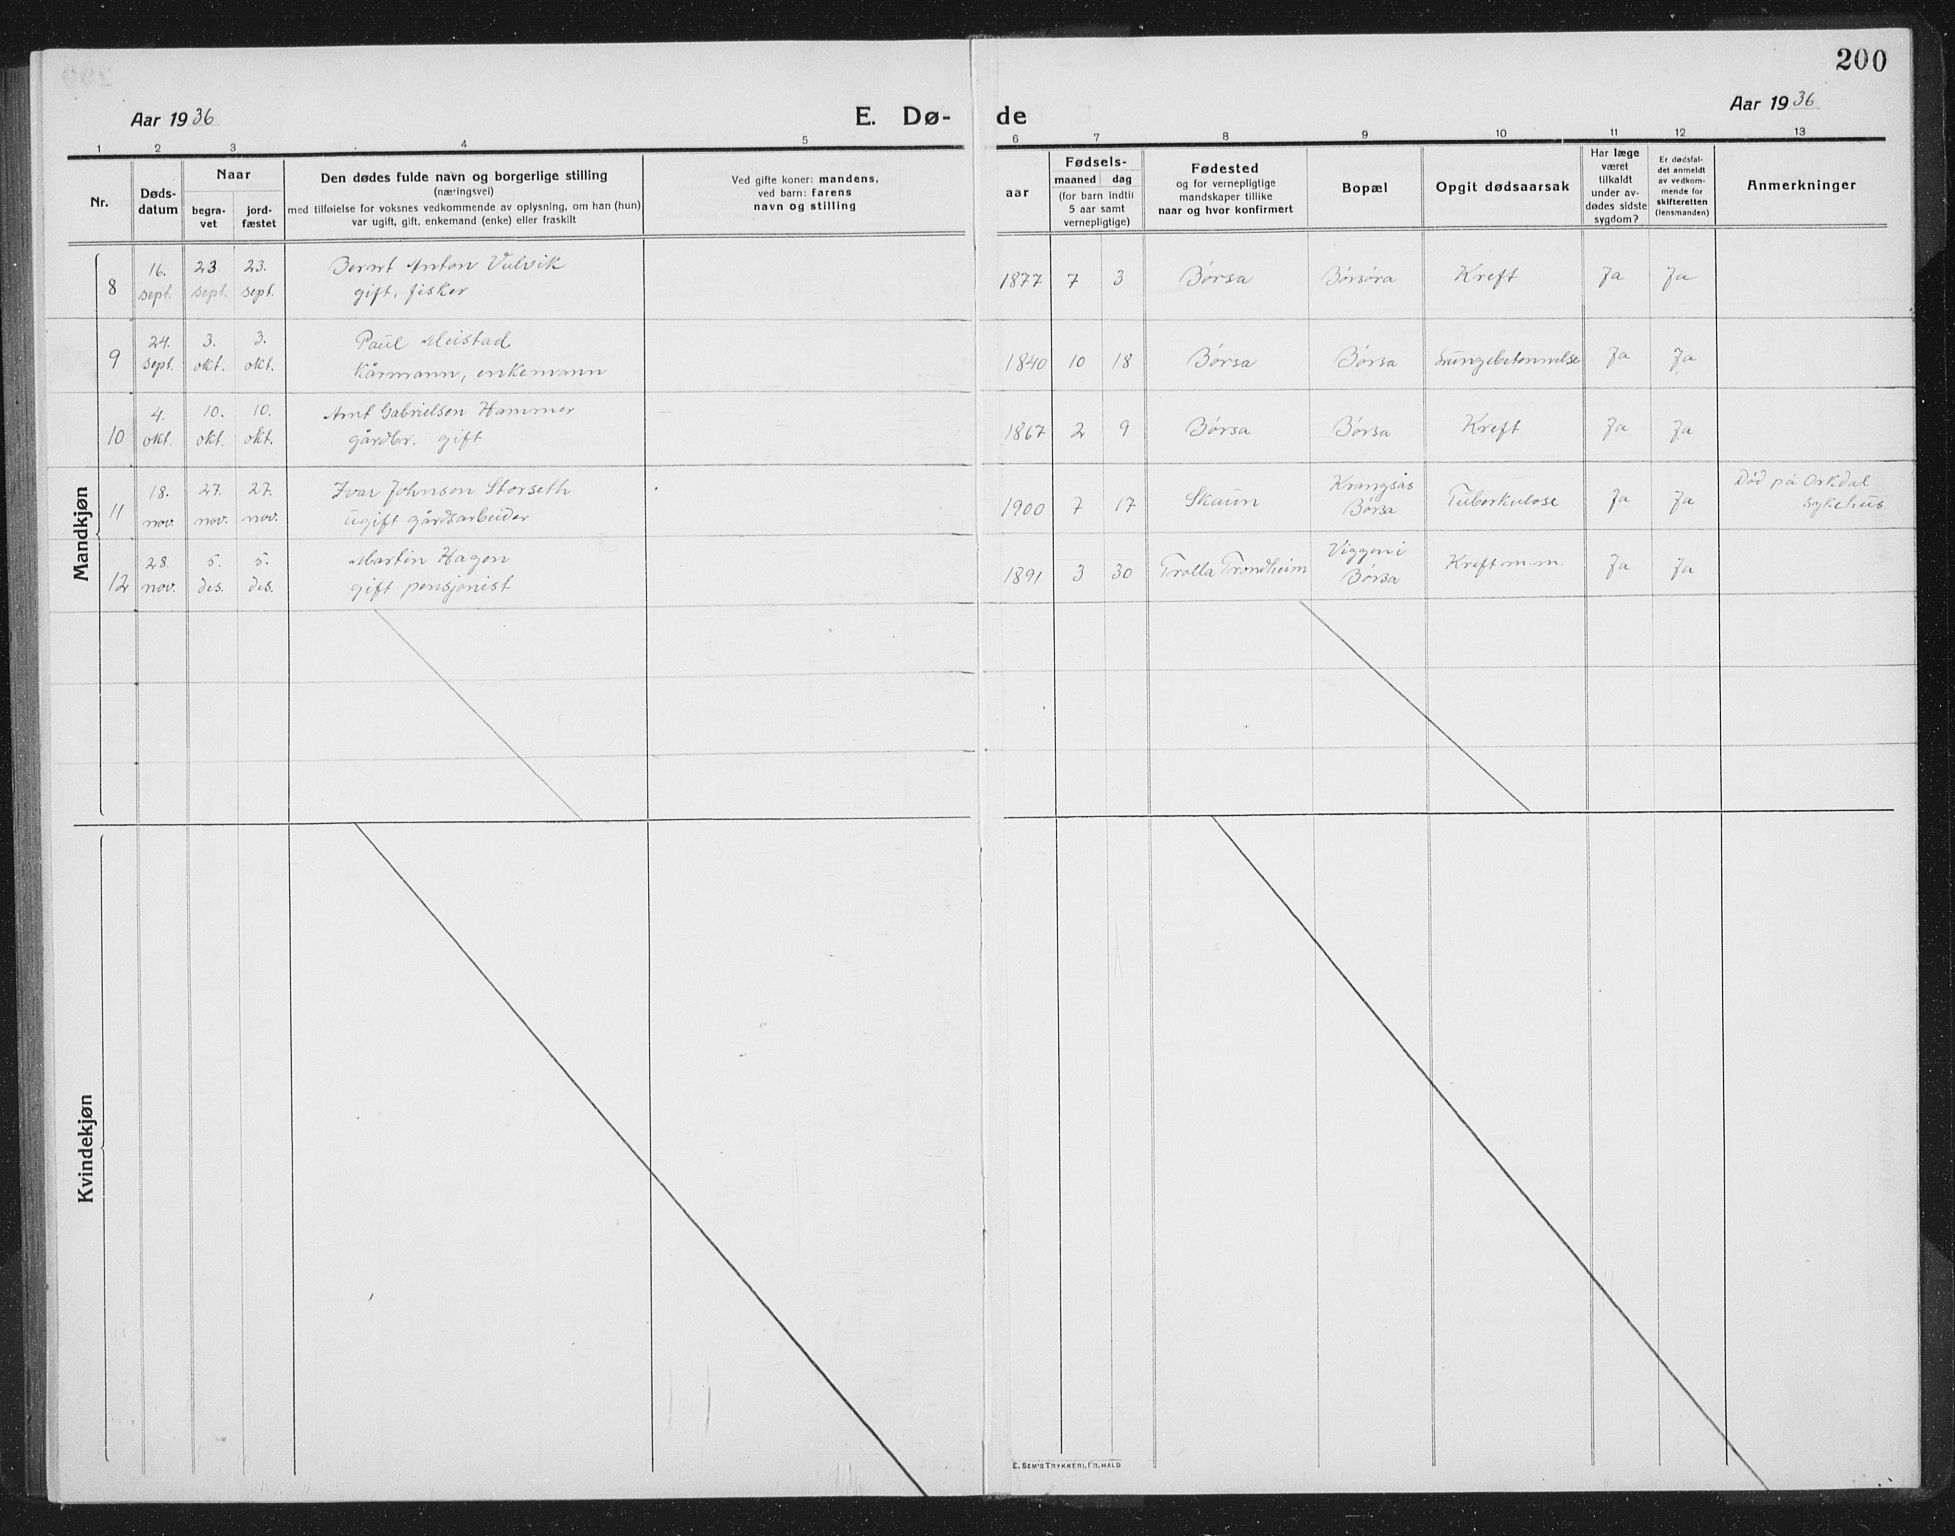 200
Aar 1936
E. Dø-
de
Aar 1936
1 2 3 4 5 6 7 8 9 10 11 12 13
Nr.
Døds-
datum
Naar
begra-
vet
jord-
fæstet
Den dødes fulde navn og borgerlige stilling
(næringsvei)
med tilføielse for voksnes vedkommende av oplysning, om han (hun)
var ugift, gift, enkemand (enke) eller fraskilt
Ved gifte koner: mandens,
ved barn: farens
navn og stilling
aar
Fødsels-
maaned dag
(for barn indtil
5 aar samt
vernepligtige)
Fødested
og for vernepligtige
mandskaper tillike
naar og hvor konfirmert
Bopæl
Opgit dødsaarsak
Har læge
været
tilkaldt
under av-
dødes sidste
sygdom?
Er dødsfal-
det anmeldt
av vedkom-
mende for
skifteretten
(lensmanden)
Anmerkninger
Mandkjøn
8 16. sept. 23. sept. 23. sept. Bernt Anton Vulvik
gift, fisker
1877 7 3 Børsa Børsøra Kreft Ja Ja
9 24. sept. 3. okt. 3. okt. Paul Meistad
Kårmann, enkemann
1840 10 18 Børsa Børsa Lungebetennelse Ja Ja
10 4. okt. 10. okt. 10. okt. Arnt Gabrielsen Hammer
gårdbr. gift
1867 2 9 Børsa Børsa Kreft Ja Ja
11 18. nov. 27. nov. 27. nov. Ivar Johnsen Storseth
ugift gårdsarbeider
1900 7 17 Skaun Krangsås
Børsa Tuberkulose Ja Ja Død på Orkdal
sykehus
12 28. nov. 5. des. 5. des. Martin Hagen
gift pensjonist
1891 3 30 Trolla Trondheim Viggen i
Børsa Kreft m.m. Ja Ja
Kvindekjøn
E. SEM'S TRYKKERI, FR. HALD